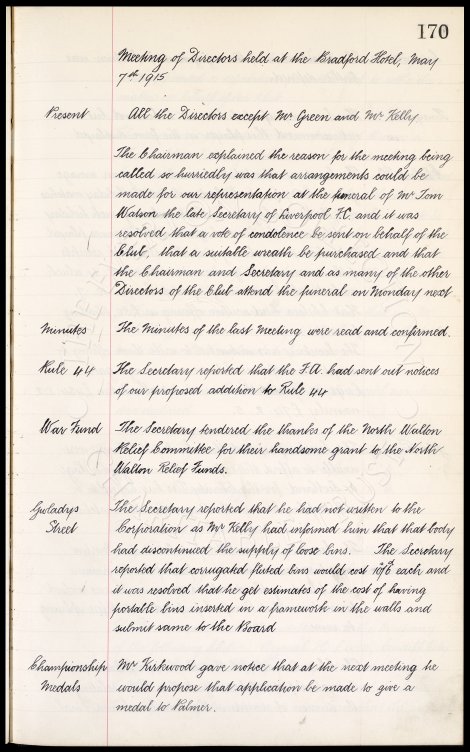 170
Meeting of Directors held at the Bradford Hotel, May
7th 1915
Present All the Directors except Mr Green and Mr Kelly
The Chairman explained the reason for the meeting being
called so hurriedly was that arrangements could be
made for our representation at the funeral of Mr Tom
Watson the late Secretary of Liverpool F.C. and it was
resolved that a vote of condolence be sent on behalf of the
Club, that a suitable wreath be purchased and that
the Chairman and Secretary and as many of the other
Directors of the Club attend the funeral on Monday next
Minutes The Minutes of the last Meeting were read and confirmed.
Rule 44 The Secretary reported that the F.A. had sent out notices
of our proposed addition to Rule 44
War Fund The Secretary tendered the thanks of the North Walton
Relief Committee for their handsome grant to the North
Walton Relief Funds.
Gwladys The Secretary reported that he had not written to the
Street Corporation as Mr Kelly had informed him that that body
had discontinued the supply of loose bins. The Secretary
reported that corrugated fluted bins would cost each and
it was resolved that he get estimates of the cost of having
portable bins inserted in a framework in the walls and
submit same to the Board
Championship Mr Kirkwood gave notice that at the next meeting he
Medals would propose that application be made to give a
medal to Palmer.